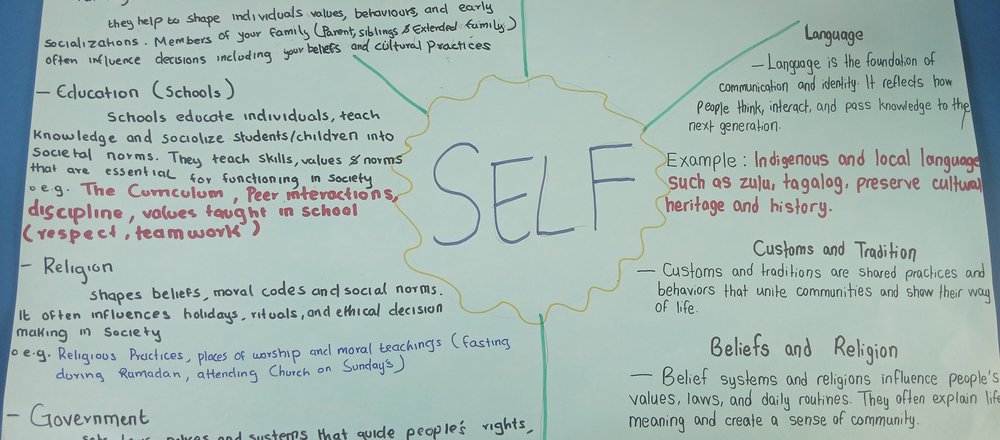 they help to shape individuals values, behaviours, and early
socializations. Members of your family (Parent, siblings & Extended family)
often influence decisions including your beliefs and cultural Practices
- Education (Schools)
Schools educate individuals, teach
Knowledge and socialize students/children into
Societal norms. They teach skills, values & norms
that are essential for functioning in society
o e.g. The Curriculum, Peer interactions,
discipline, values taught in school
(respect, teamwork)
- Religion
shapes beliefs, moral codes and social norms.
It often influences holidays, rituals, and ethical decision
making in Society
o e.g. Religious Practices, places of worship and moral teachings (fasting
during Ramadan, attending Church on Sunday's)
- Government
and systems that guide people's rights,
SELF
Language
- Language is the foundation of
communication and identity. It reflects how
People think, interact, and pass knowledge to the
next generation.
Example: Indigenous and local language
such as zulu, tagalog, preserve cultural
heritage and history.
Customs and Tradition
- Customs and traditions are shared practices and
behaviors that unite communities and show their way
of life.
Beliefs and Religion
- Belief systems and religions influence people's
values, laws, and daily routines. They often explain life
meaning and create a sense of community.